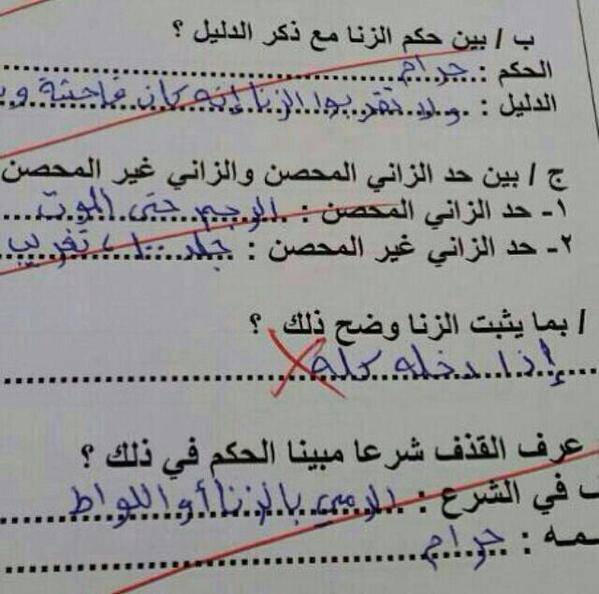 ب / بين حكم الزنا مع ذكر الدليل ؟
الحكم : حرام
الدليل : ولا تقربوا الزنا إنه كان فاحشة و
ج / بين حد الزاني المحصن والزاني غير المحصن
١- حد الزاني المحصن : الرجم حتى الموت
٢- حد الزاني غير المحصن : جلد ١٠٠، تغريب
/ بما يثبت الزنا وضح ذلك ؟
إذا دخله كله
عرف القذف شرعا مبينا الحكم في ذلك ؟
ف في الشرع : الرمي بالزنا أو اللواط
ـمه : حرام